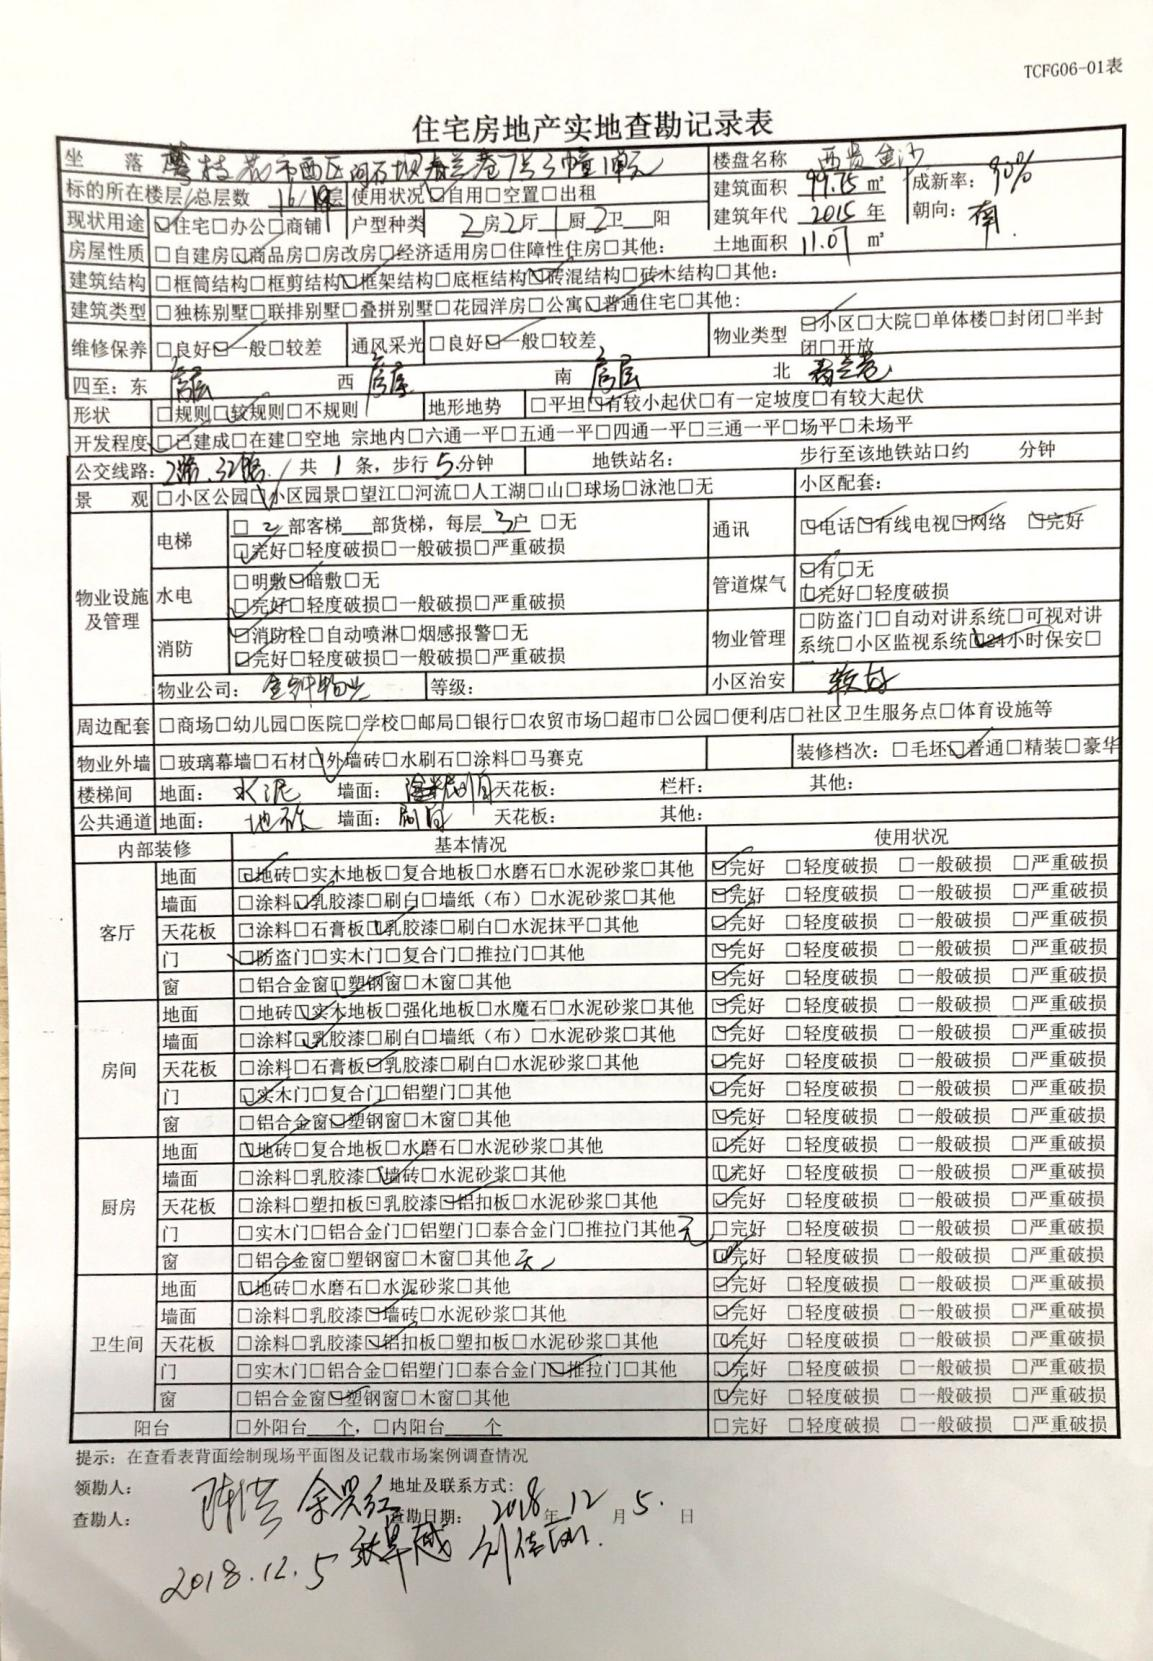 TCFG06-01表
住宅房地产实地查勘记录表
坐 落 攀枝花市西区河石坝春兰巷7号3幢1单元 楼盘名称 西贵金沙
标的所在楼层/总层数 16/18层 使用状况 ☑自用□空置□出租 建筑面积 99.75 ㎡ 成新率: 90%
现状用途 ☑住宅□办公□商铺 户型种类 2房2厅1厨2卫__阳 建筑年代 2015 年 朝向: 南
房屋性质 □自建房☑商品房□房改房□经济适用房□住障性住房□其他: 土地面积 11.07 ㎡
建筑结构 □框筒结构□框剪结构☑框架结构□底框结构☑砖混结构□砖木结构□其他:
建筑类型 □独栋别墅□联排别墅□叠拼别墅□花园洋房□公寓☑普通住宅□其他:
维修保养 □良好☑一般□较差 通风采光 □良好☑一般□较差 物业类型 ☑小区□大院□单体楼□封闭□半封
闭□开放
四至: 东 房屋 西 房屋 南 房屋 北 春兰巷
形状 □规则☑较规则□不规则 地形地势 □平坦☑有较小起伏□有一定坡度□有较大起伏
开发程度 ☑已建成□在建□空地 宗地内□六通一平□五通一平□四通一平□三通一平□场平□未场平
公交线路: 2路、32路 共 1 条, 步行 5 分钟 地铁站名: 步行至该地铁站口约 分钟
景 观 □小区公园☑小区园景□望江□河流□人工湖□山□球场□泳池□无 小区配套:
物业设施及管理 电梯 □ 2 部客梯__部货梯, 每层 3户 □无 通讯 ☑电话☑有线电视☑网络 ☑完好
☑完好□轻度破损□一般破损□严重破损
水电 □明敷☑暗敷□无 管道煤气 ☑有□无
☑完好□轻度破损□一般破损□严重破损 ☑完好□轻度破损
消防 ☑消防栓□自动喷淋□烟感报警□无 物业管理 □防盗门□自动对讲系统□可视对讲
系统□小区监视系统☑24小时保安□
☑完好□轻度破损□一般破损□严重破损
物业公司: 金钟物业 等级: 小区治安 较好
周边配套 □商场□幼儿园□医院□学校□邮局□银行□农贸市场□超市□公园□便利店□社区卫生服务点□体育设施等
物业外墙 □玻璃幕墙□石材☑外墙砖□水刷石□涂料□马赛克 装修档次: □毛坯☑普通□精装□豪华
楼梯间 地面: 水泥 墙面: 刷白 天花板: 栏杆: 其他:
公共通道 地面: 地砖 墙面: 刷白 天花板: 其他:
内部装修 基本情况 使用状况
客厅 地面 ☑地砖□实木地板□复合地板□水磨石□水泥砂浆□其他 ☑完好 □轻度破损 □一般破损 □严重破损
墙面 □涂料☑乳胶漆□刷白□墙纸（布）□水泥砂浆□其他 ☑完好 □轻度破损 □一般破损 □严重破损
天花板 □涂料□石膏板☑乳胶漆□刷白□水泥抹平□其他 ☑完好 □轻度破损 □一般破损 □严重破损
门 ☑防盗门□实木门□复合门□推拉门□其他 ☑完好 □轻度破损 □一般破损 □严重破损
窗 □铝合金窗☑塑钢窗□木窗□其他 ☑完好 □轻度破损 □一般破损 □严重破损
房间 地面 □地砖☑实木地板□强化地板□水魔石□水泥砂浆□其他 ☑完好 □轻度破损 □一般破损 □严重破损
墙面 □涂料☑乳胶漆□刷白□墙纸（布）□水泥砂浆□其他 ☑完好 □轻度破损 □一般破损 □严重破损
天花板 □涂料□石膏板☑乳胶漆□刷白□水泥砂浆□其他 ☑完好 □轻度破损 □一般破损 □严重破损
门 ☑实木门□复合门□铝塑门□其他 ☑完好 □轻度破损 □一般破损 □严重破损
窗 □铝合金窗☑塑钢窗□木窗□其他 ☑完好 □轻度破损 □一般破损 □严重破损
厨房 地面 ☑地砖□复合地板□水磨石□水泥砂浆□其他 ☑完好 □轻度破损 □一般破损 □严重破损
墙面 □涂料□乳胶漆☑墙砖□水泥砂浆□其他 ☑完好 □轻度破损 □一般破损 □严重破损
天花板 □涂料□塑扣板□乳胶漆☑铝扣板□水泥砂浆□其他 ☑完好 □轻度破损 □一般破损 □严重破损
门 □实木门□铝合金门□铝塑门□泰合金门□推拉门其他 无 □完好 □轻度破损 □一般破损 □严重破损
窗 □铝合金窗□塑钢窗□木窗□其他 无 ☑完好 □轻度破损 □一般破损 □严重破损
卫生间 地面 ☑地砖□水磨石□水泥砂浆□其他 ☑完好 □轻度破损 □一般破损 □严重破损
墙面 □涂料□乳胶漆☑墙砖□水泥砂浆□其他 ☑完好 □轻度破损 □一般破损 □严重破损
天花板 □涂料□乳胶漆☑铝扣板□塑扣板□水泥砂浆□其他 ☑完好 □轻度破损 □一般破损 □严重破损
门 □实木门□铝合金□铝塑门□泰合金门☑推拉门□其他 ☑完好 □轻度破损 □一般破损 □严重破损
窗 □铝合金窗☑塑钢窗□木窗□其他 ☑完好 □轻度破损 □一般破损 □严重破损
阳台 □外阳台__个, □内阳台__个 □完好 □轻度破损 □一般破损 □严重破损
提示: 在查看表背面绘制现场平面图及记载市场案例调查情况
领勘人: 地址及联系方式:
查勘人: 陈洪 余兴红 查勘日期: 2018 年 12 月 5 日
2018.12.5